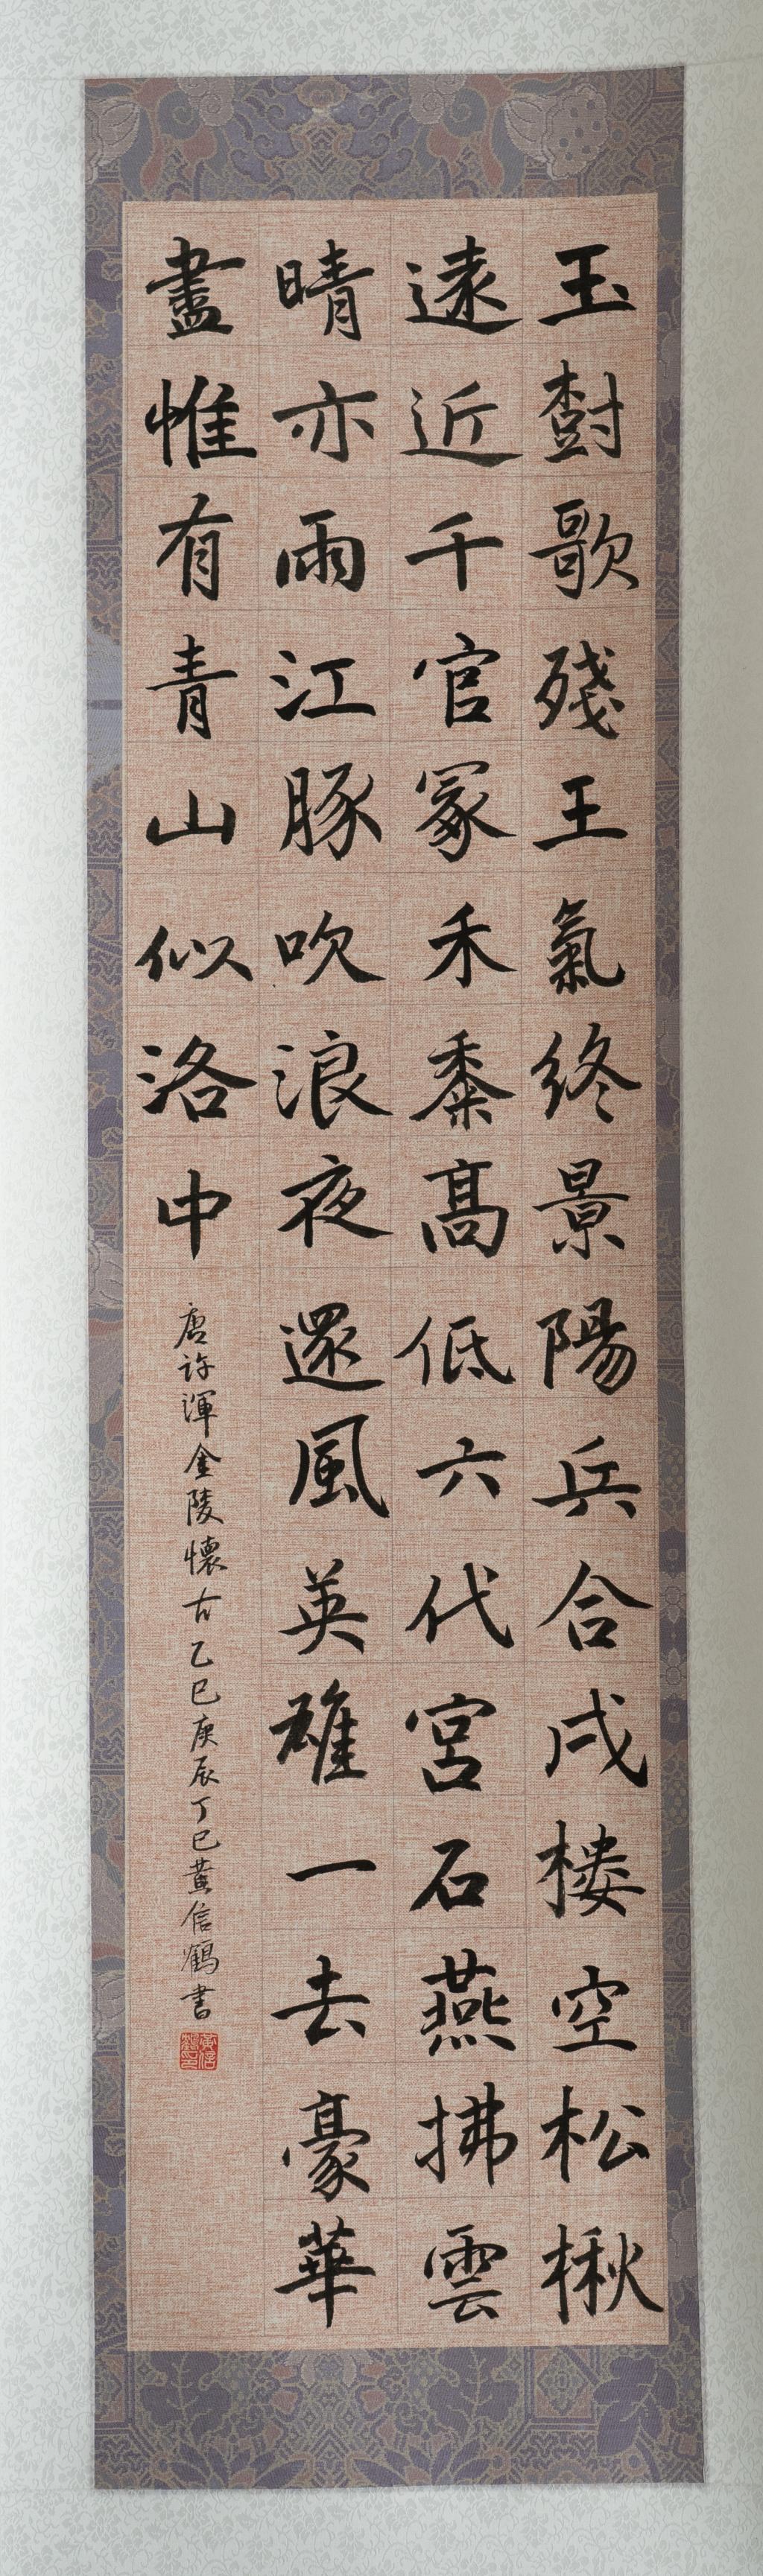 玉樹歌殘王氣終景陽兵合戍樓空松楸
遠近千官冢禾黍高低六代宮石燕拂雲
晴亦雨江豚吹浪夜還風英雄一去豪華
盡惟有青山似洛中
唐許渾金陵懷古乙巳庚辰丁巳黃信鶴書
黃信鶴印